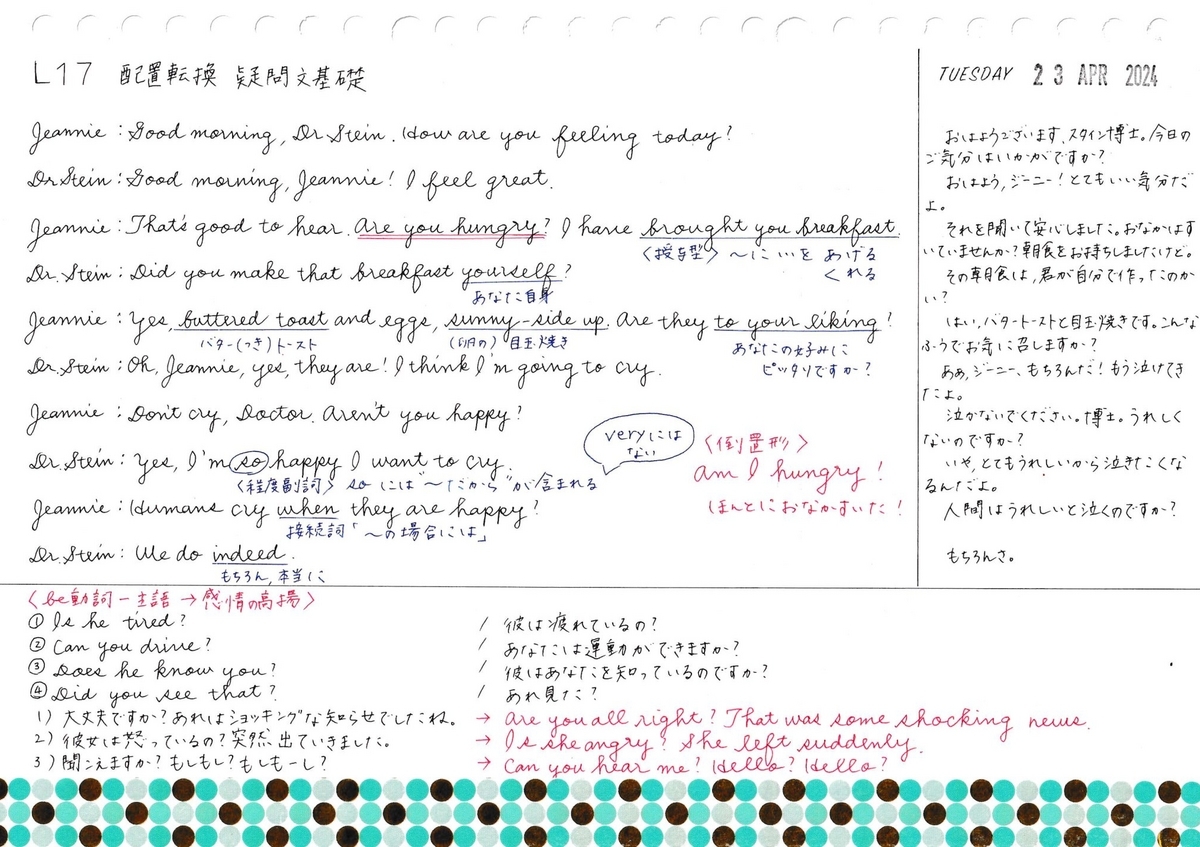 L17 配置転換 疑問文基礎
TUESDAY 23 APR 2024
Jeannie : Good morning, Dr Stein. How are you feeling today?
Dr Stein : Good morning, Jeannie! I feel great.
Jeannie : That's good to hear. Are you hungry? I have brought you breakfast.
〈授与型〉 〜に…を あげる
くれる
Dr. Stein : Did you make that breakfast yourself?
あなた自身
Jeannie : Yes, buttered toast and eggs, sunny-side up. Are they to your liking?
バター(つき)トースト
(卵の) 目玉焼き
あなたの好みに
ピッタリですか?
Dr. Stein : Oh, Jeannie, yes, they are! I think I'm going to cry.
Jeannie : Don't cry, Doctor. Aren't you happy?
Dr. Stein : Yes, I'm so happy I want to cry.
〈程度副詞〉 so には"〜だから"が含まれる
veryには
ない
〈倒置形〉
Am I hungry!
ほんとにおなかすいた!
Jeannie : Humans cry when they are happy?
接続詞「〜の場合には」
Dr. Stein : We do indeed.
もちろん, 本当に
おはようございます、スタイン博士。今日の
ご気分はいかがですか?
おはよう, ジーニー! とてもいい気分だ
よ。
それを聞いて安心しました。おなかはす
いていませんか? 朝食をお持ちしましたけど。
その朝食は, 君が自分で作ったのか
い?
はい, バタートーストと目玉焼きです。こんな
ふうでお気に召しますか?
ああ, ジーニー、もちろんだ! もう泣けてき
たよ。
泣かないでください。博士。うれしく
ないのですか?
いや, とてもうれしいから泣きたくな
るんだよ。
人間はうれしいと泣くのですか?
もちろんさ。
〈be動詞 − 主語 → 感情の高揚〉
① Is he tired? / 彼は疲れているの?
② Can you drive? / あなたは運動ができますか?
③ Does he know you? / 彼はあなたを知っているのですか?
④ Did you see that? / あれ見た?
1) 大丈夫ですか? あれはショッキングな知らせでしたね。 → Are you all right? That was some shocking news.
2) 彼女は怒っているの? 突然出ていきました。 → Is she angry? She left suddenly.
3) 聞こえますか? もしもし? もしもーし? → Can you hear me? Hello? Hello?